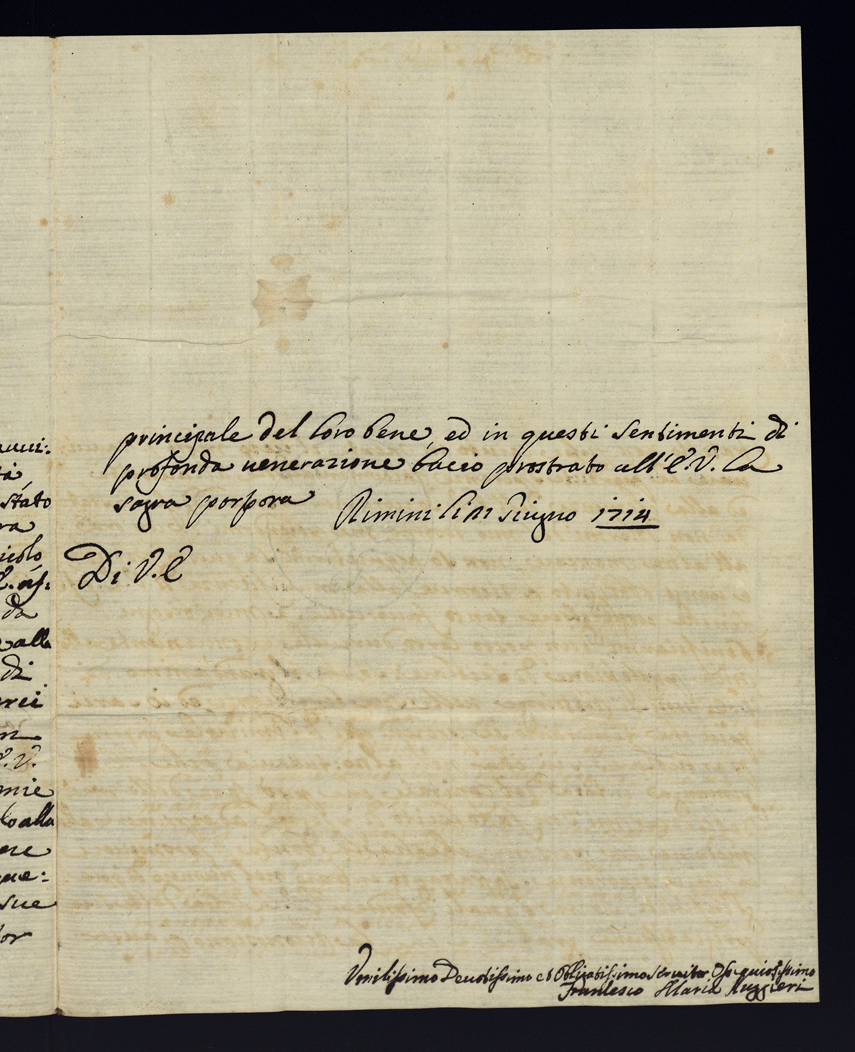 principale del loro bene, ed in questi sentimenti di
profonda uenerazione bacio prostrato all'E.V. la
sagra porpora Rimini li Giugno 1714
Di V.E
Vmilissimo Deuotissimo et Obligatissimo seruitor Ossequiosissimo
Francesco Maria Ruggieri
stato
da
alla
di
E.V.
alla
sue